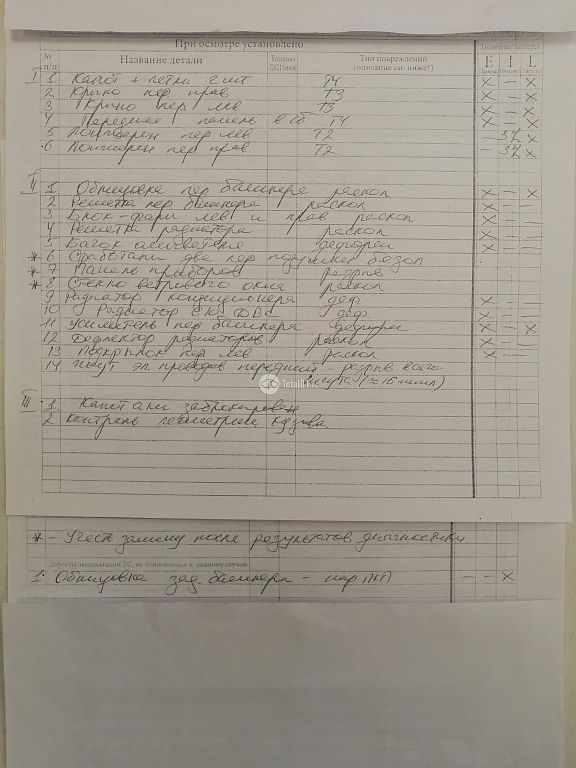 При осмотре установлено
№ п/п Название детали Тип повреждений (описание см. ниже*) E I L
I 1 Капот + петли 2 шт Т4 X – X
2 Крыло пер прав Т3 X – X
3 Крыло пер лев Т3 X – X
4 Передняя панель в сб Т4 X – X
5 Лонжерон пер лев Т2 – 3ч X
6 Лонжерон пер прав Т2 – 3ч X
II 1 Облицовка пер бампера раскол X – X
2 Решетка пер бампера раскол X –
3 Блок-фары лев и прав раскол X –
4 Решетка радиатора раскол X –
5 Бачок омывателя деформ X –
* 6 Сработали две пер подушки безоп
* 7 Панель приборов разрыв
* 8 Стекло ветрового окна раскол
9 Радиатор кондиционера деф. X –
10 Радиатор СО ДВС деф. X –
11 Усилитель пер. бампера деформ X – X
12 Дефлектор радиаторов раскол X –
13 Подкрылок пер лев раскол X –
14 Жгут эл. проводов передний - разрыв всего
жгута
TotalBid
III 1 Капот а/м заблокирован
2 Контроль геометрии кузова.
* - Учесть замену после результатов диагностики
Дефекты эксплуатации ТС, не относящиеся к данному случаю
1. Облицовка зад. бампера - нар ЛКП – – X